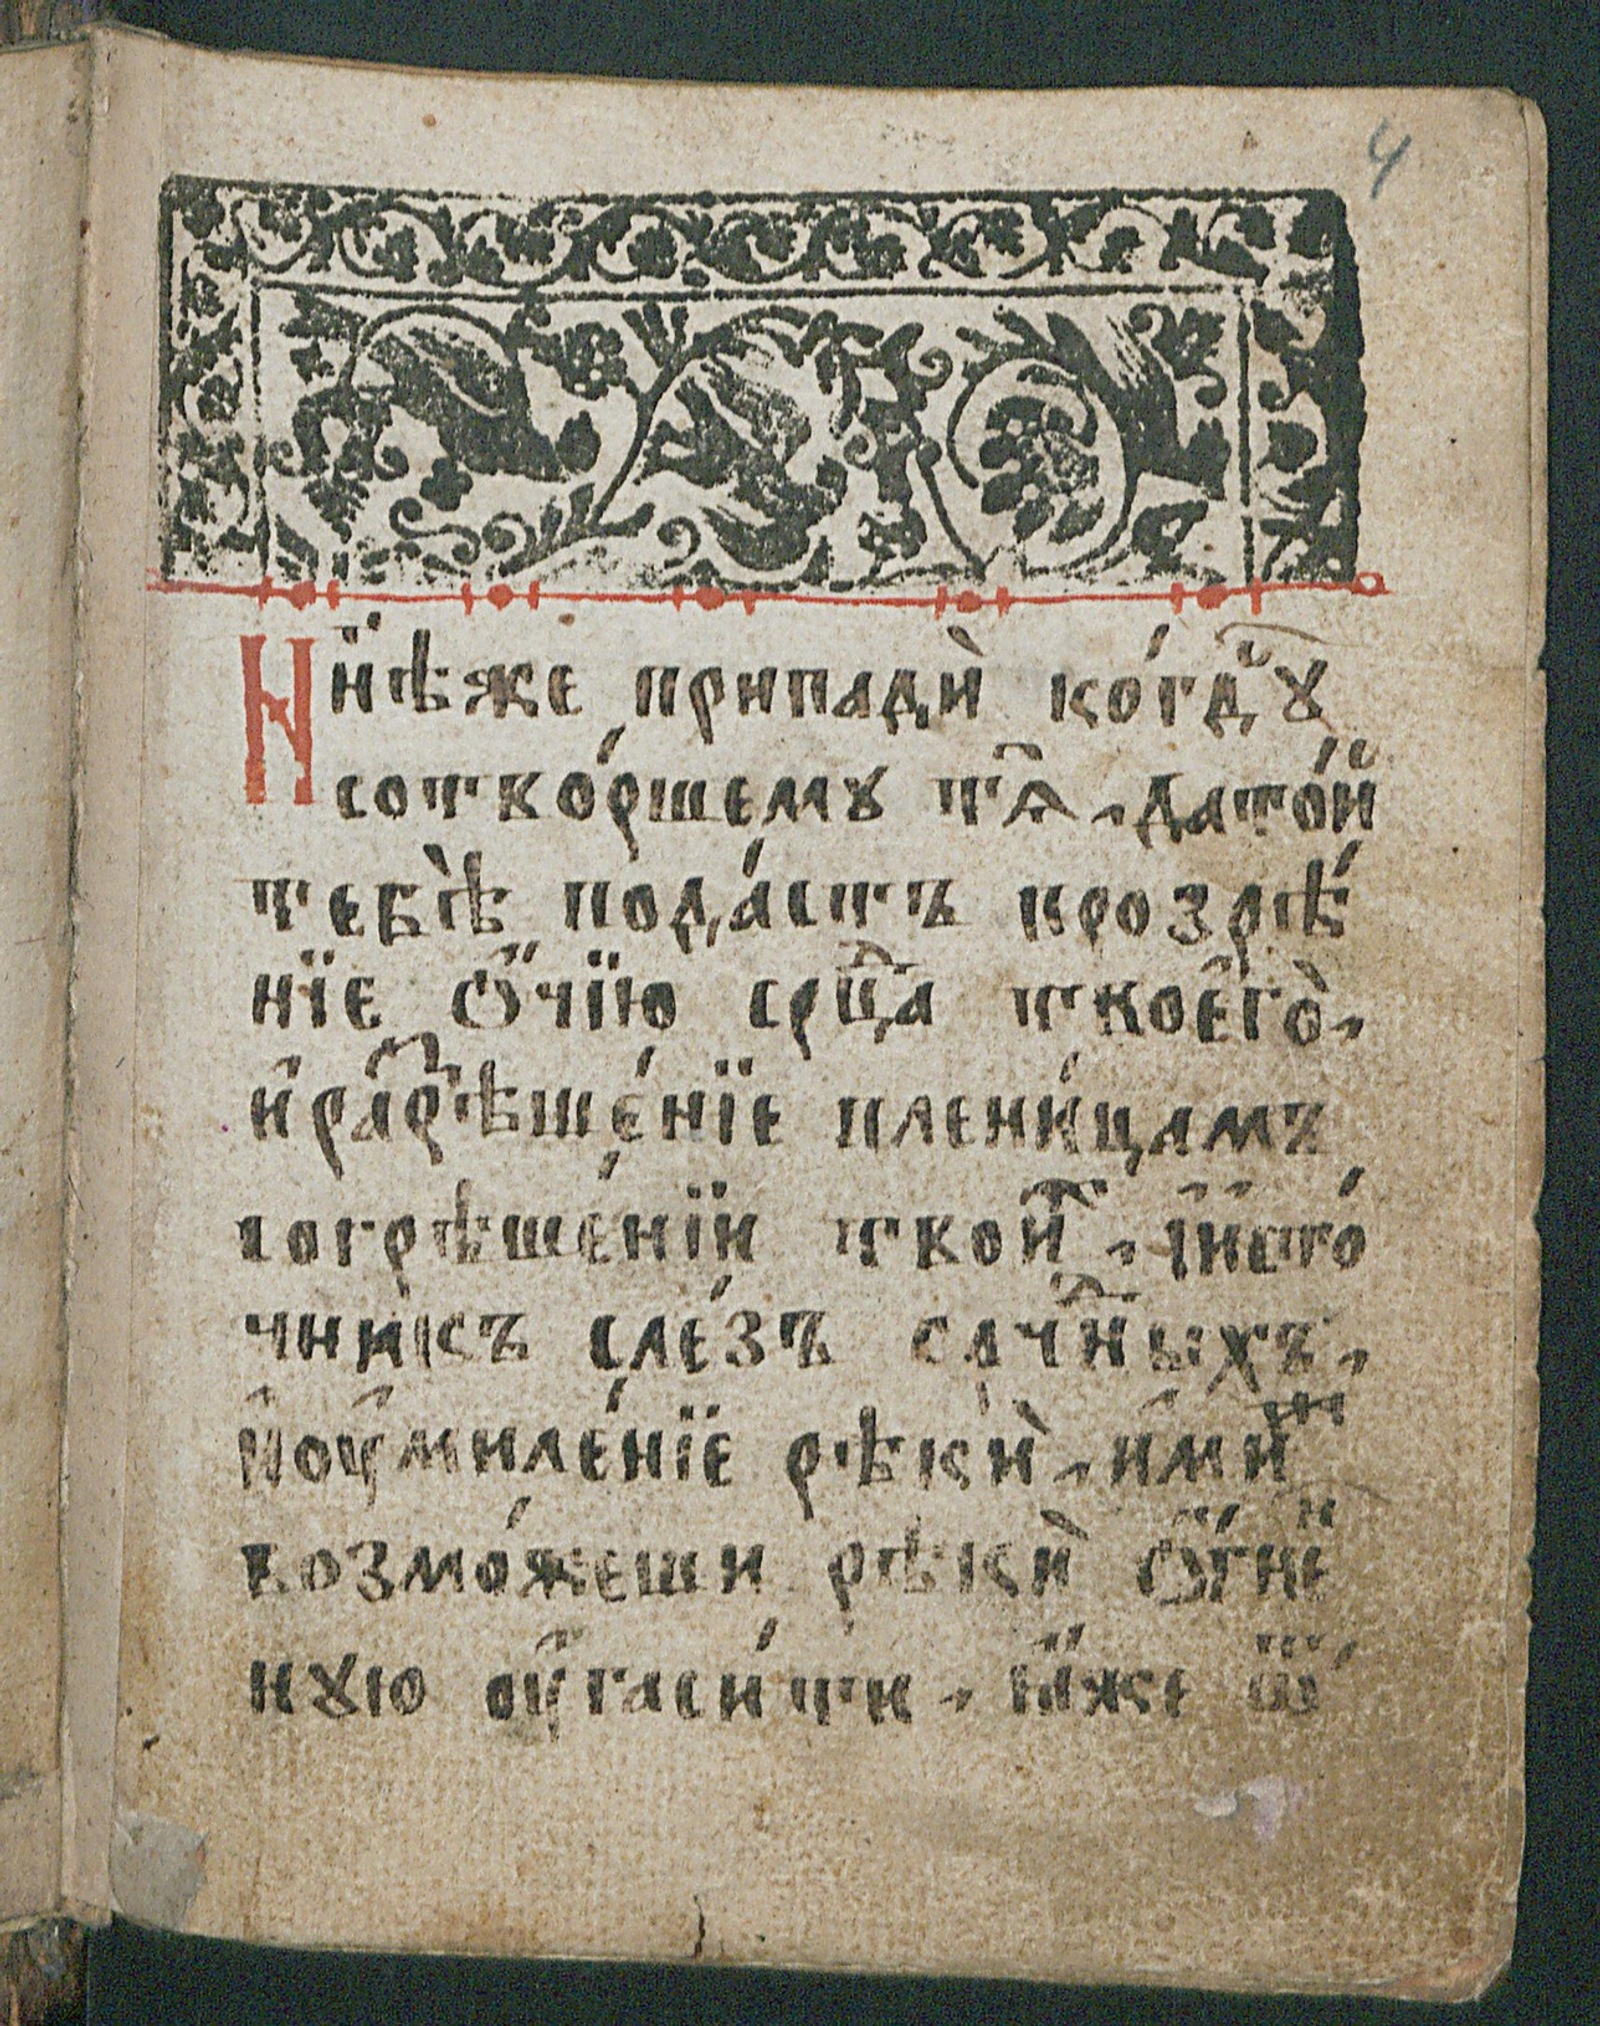 4
Нн҃ѣже припадѝ ко́гдⷭ҇ꙋ
сотво́ршемꙋ тѧ̑, дато́й
тебѣ̀ пода́стъ прозрѣ́
нїе ѻ҆́чїю срⷣца твоегѡ̀,
и҆разⸯрѣше́нїе плени́цамъ
согрѣше́нїй твоиⷯ, і҆и҆сто́
чникъ сле́зъ слⷣчныхъ,
и҆оу҆миле́нїе рѣкѝ, и҆́миⷤ
возмо́жеши рѣкѝ ѻ҆́гнеⷩ
нꙋю оу҆гаси́ти, ꙗ҆́же ѿ